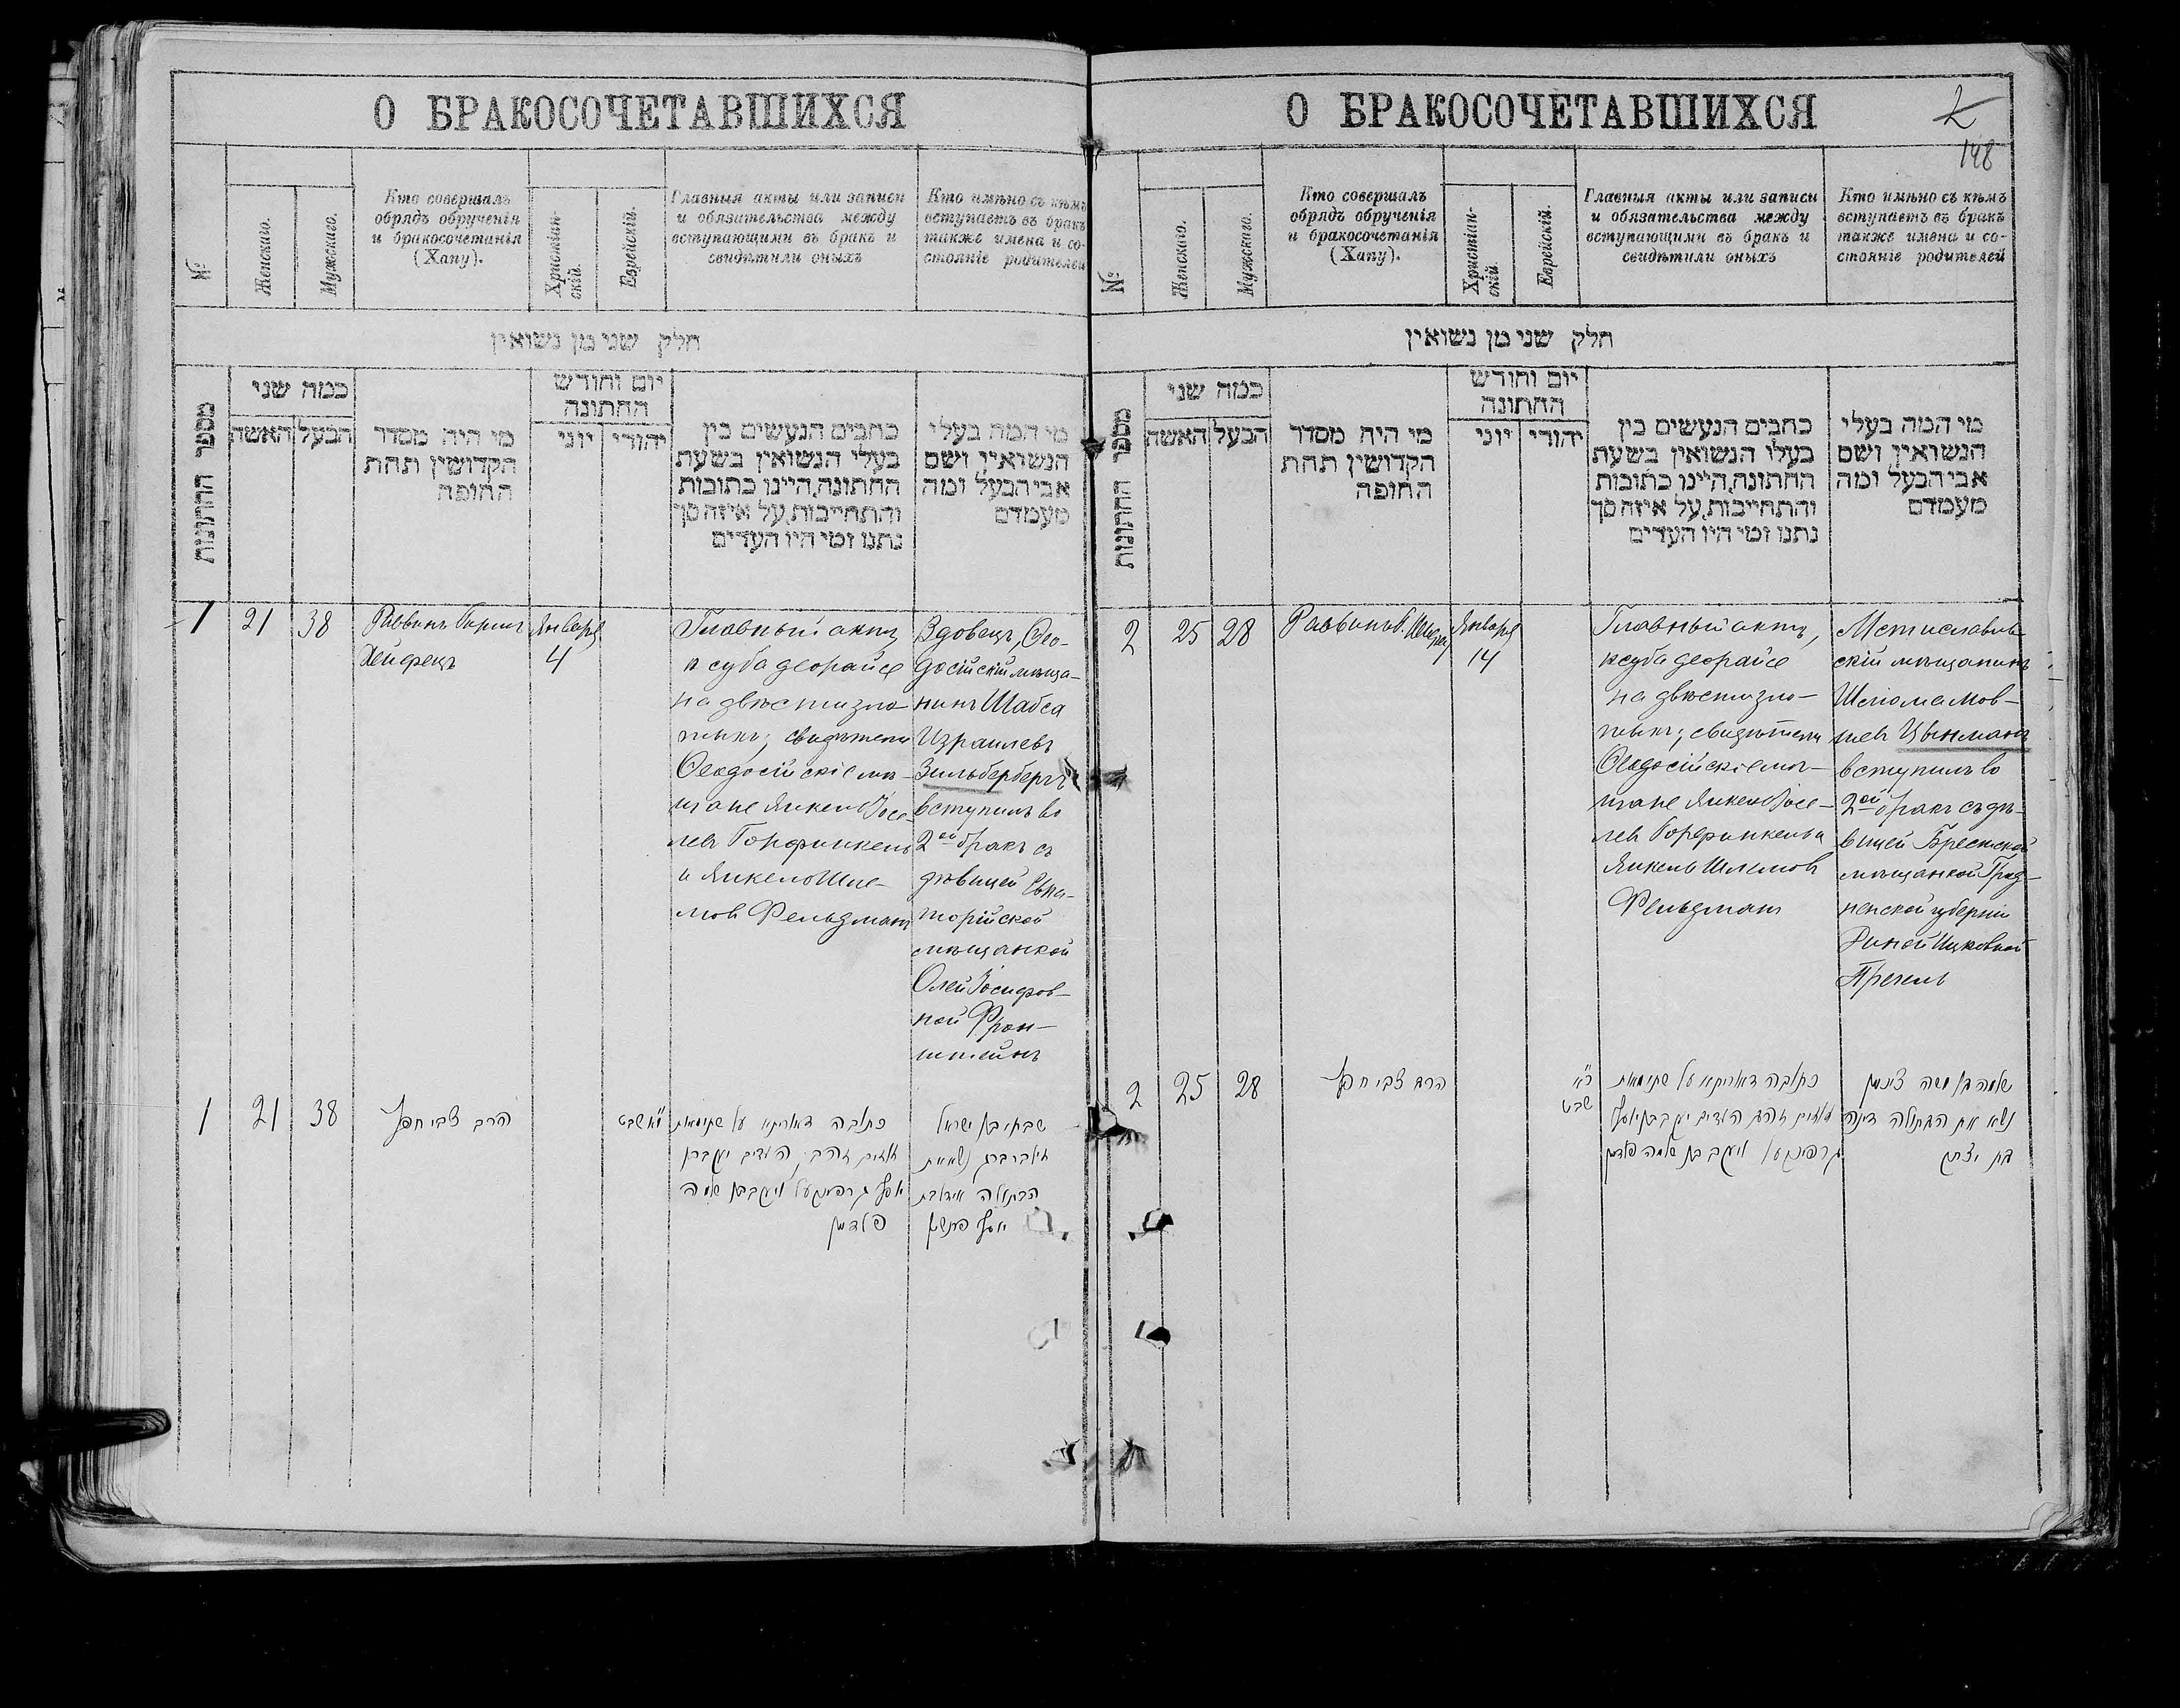 О БРАКОСОЧЕТАВШИХСЯ
№
Женскаго.
Мужскаго.
Кто совершалъ
обрядъ обрученія
и бракосочетанія
(Хапу).
Христіан-
скій.
Еврейскій.
Главныя акты или записи
и обязательства между
вступающими въ бракъ и
свидѣтили оныхъ
Кто имѣно съ кѣмъ
вступаетъ въ бракъ
также имена и со-
стояніе родителей
חלק שני מן נשואין
מספר החתונות
כמה שני
האשה
הבעל
מי היה מסדר
הקדושין תחת
החופה
יום וחודש
החתונה
יוני
יהודי
כתבים הנעשים בין
בעלי הנשואין בשעת
החתונה,היינו כתובות
והתחייבות,על איזה סך
נתנו ומי היו העדים
מי המה בעלי
הנשואין ושם
אבי הבעל ומה
מעמדם
1
21
38
Раввинъ Гирш
Хейфецъ
Января
4
Главный актъ
ксуба деорайсе
на двѣсти зло-
тыхъ; свидѣтели
Ѳеодосійскіе мѣ-
щане Янкель Іосе-
левъ Горфинкель
и Янкель Шле-
мов Фельдманъ
Вдовецъ, Ѳео-
досійскій мѣща-
нинъ Шабса
Израилевъ
Зильбербергъ
вступилъ во
2ой бракъ съ
дѣвицей Евпа-
торійской
мѣщанкой
Олей Іосифов-
ной Фрон-
штейнъ
1
21
38
הרב צבי חפץ
י"א שבט
כתובה דאורייתא על שתי מאות
אדומים זהב, העדים יעקב בן
יוסף גרפינקעל ויעקב בן שלמה
פעלדמן
שבתי בן ישראל
זילברברג נשא את
הבתולה
יוסף
О БРАКОСОЧЕТАВШИХСЯ
2
148
№
Женскаго.
Мужскаго.
Кто совершалъ
обрядъ обрученія
и бракосочетанія
(Хапу).
Христіан-
скій.
Еврейскій.
Главныя акты или записи
и обязательства между
вступающими въ бракъ и
свидѣтили оныхъ
Кто имѣно съ кѣмъ
вступаетъ въ бракъ
также имена и со-
стояніе родителей
חלק שני מן נשואין
מספר החתונות
כמה שני
האשה
הבעל
מי היה מסדר
הקדושין תחת
החופה
יום וחודש
החתונה
יוני
יהודי
כתבים הנעשים בין
בעלו הנשואין בשעת
החתונה,היינו כתובות
והתחייבות,על איזה סך
נתנו ומי היו העדים
מי המה בעלי
הנשואין ושם
אבי הבעל ומה
מעמדם
2
25
28
Раввинъ
Января
14
Главный актъ,
ксуба деорайсе
на двѣсти зло-
тыхъ; свидѣтели
Ѳеодосійскіе мѣ-
щане Янкель Іосе-
левъ Горфинкель и
Янкель Шлемов
Фельдманъ
Мстиславль-
скій мѣщанинъ
Шлома Мов-
шевъ Цынманъ
вступилъ во
2ой бракъ съ дѣ-
вицей Брестской
мѣщанкой Грод-
ненской губерніи
Диной Ицковной
Прегель
2
25
28
הרב צבי חפץ
כ"א
שבט
כתובה דאורייתא על שתי מאות
אדומים זהב, העדים יעקב בן יוסף
גרפינקעל ויעקב בן שלמה פעלדמן
שלמה בן משה צינמן
נשא את הבתולה דינה
בת יצחק